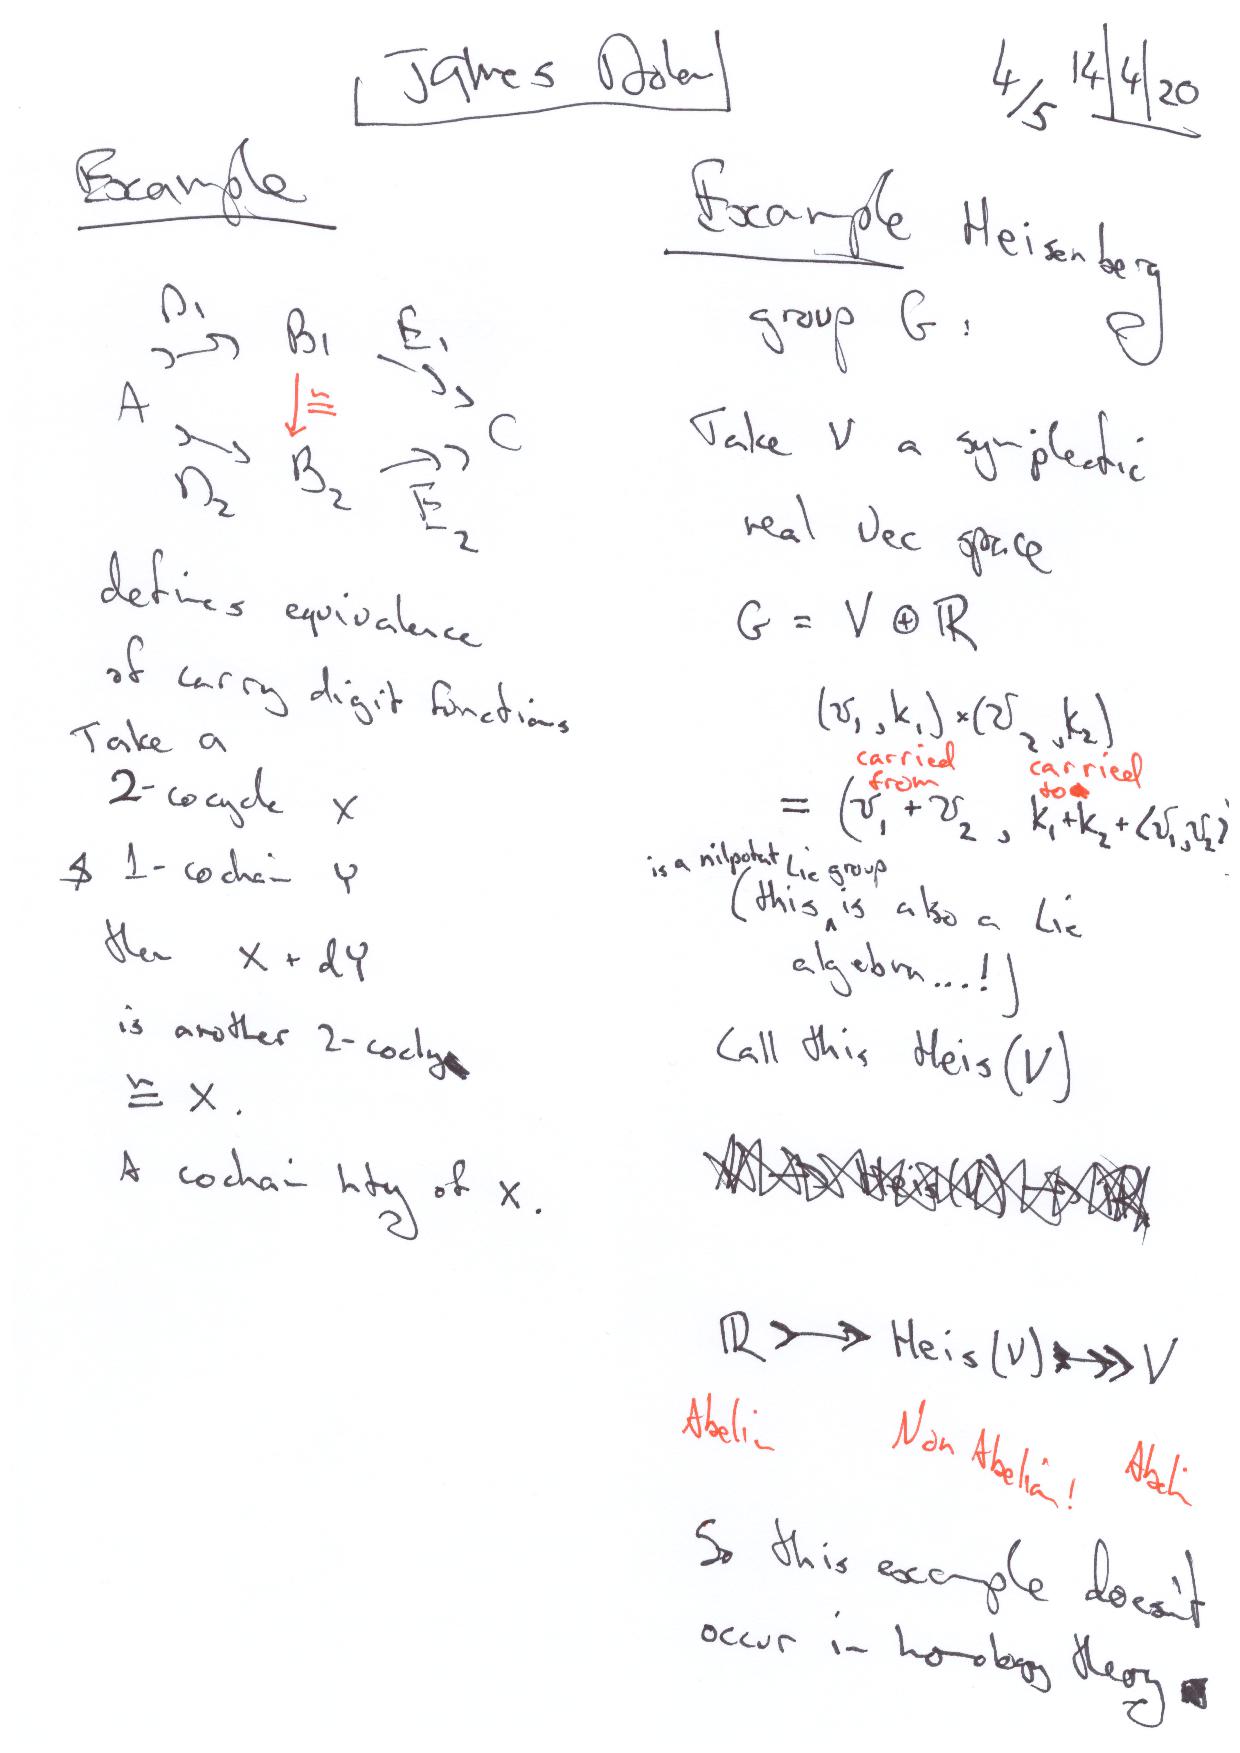 James Dolan
4/5 14|4|20
Example
D1 B1 E1
A ≅ C
D2 B2 E2
defines equivalence
of carry digit functions
Take a
2-cocycle X
& 1-cochain Y
then X + dY
is another 2-cocly
≅ X.
A cochain hty of X.
Example Heisenberg
group G:
Take V a symplectic
real vec space
G = V ⊕ ℝ
(v1, k1) × (v2, k2)
carried from carried to
= (v1 + v2, k1 + k2 + ⟨v1, v2⟩)
is a nilpotent Lie group
(this ^ is also a Lie
algebra...!)
Call this Heis(V)
ℝ ↣ Heis(V) ↠ V
Abelian Non Abelian! Abelian
So this example doesn't
occur in homology theory